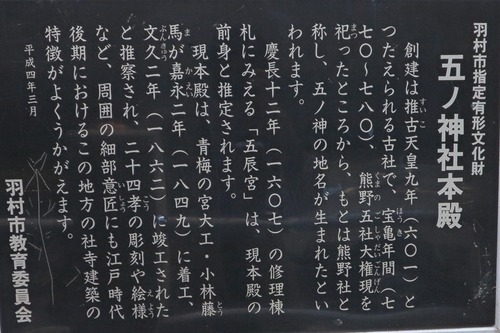 羽村市指定有形文化財
五ノ神社本殿
創建は推古天皇九年（六〇一）と
つたえられる古社で、宝亀年間（七
七〇～七八〇）、熊野五社大権現を
祀ったところから、もとは熊野社と
称し、五ノ神の地名が生まれたとい
われます。
慶長十二年（一六〇七）の修理棟
札にみえる「五辰宮」は、現本殿の
前身と推定されます。
現本殿は、青梅の宮大工・小林藤
馬が嘉永二年（一八四九）に着工、
文久二年（一八六二）に竣工された
と推察され、二十四孝の彫刻や絵様
など、周囲の細部意匠にも江戸時代
後期におけるこの地方の社寺建築の
特徴がよくうかがえます。
平成四年三月
羽村市教育委員会